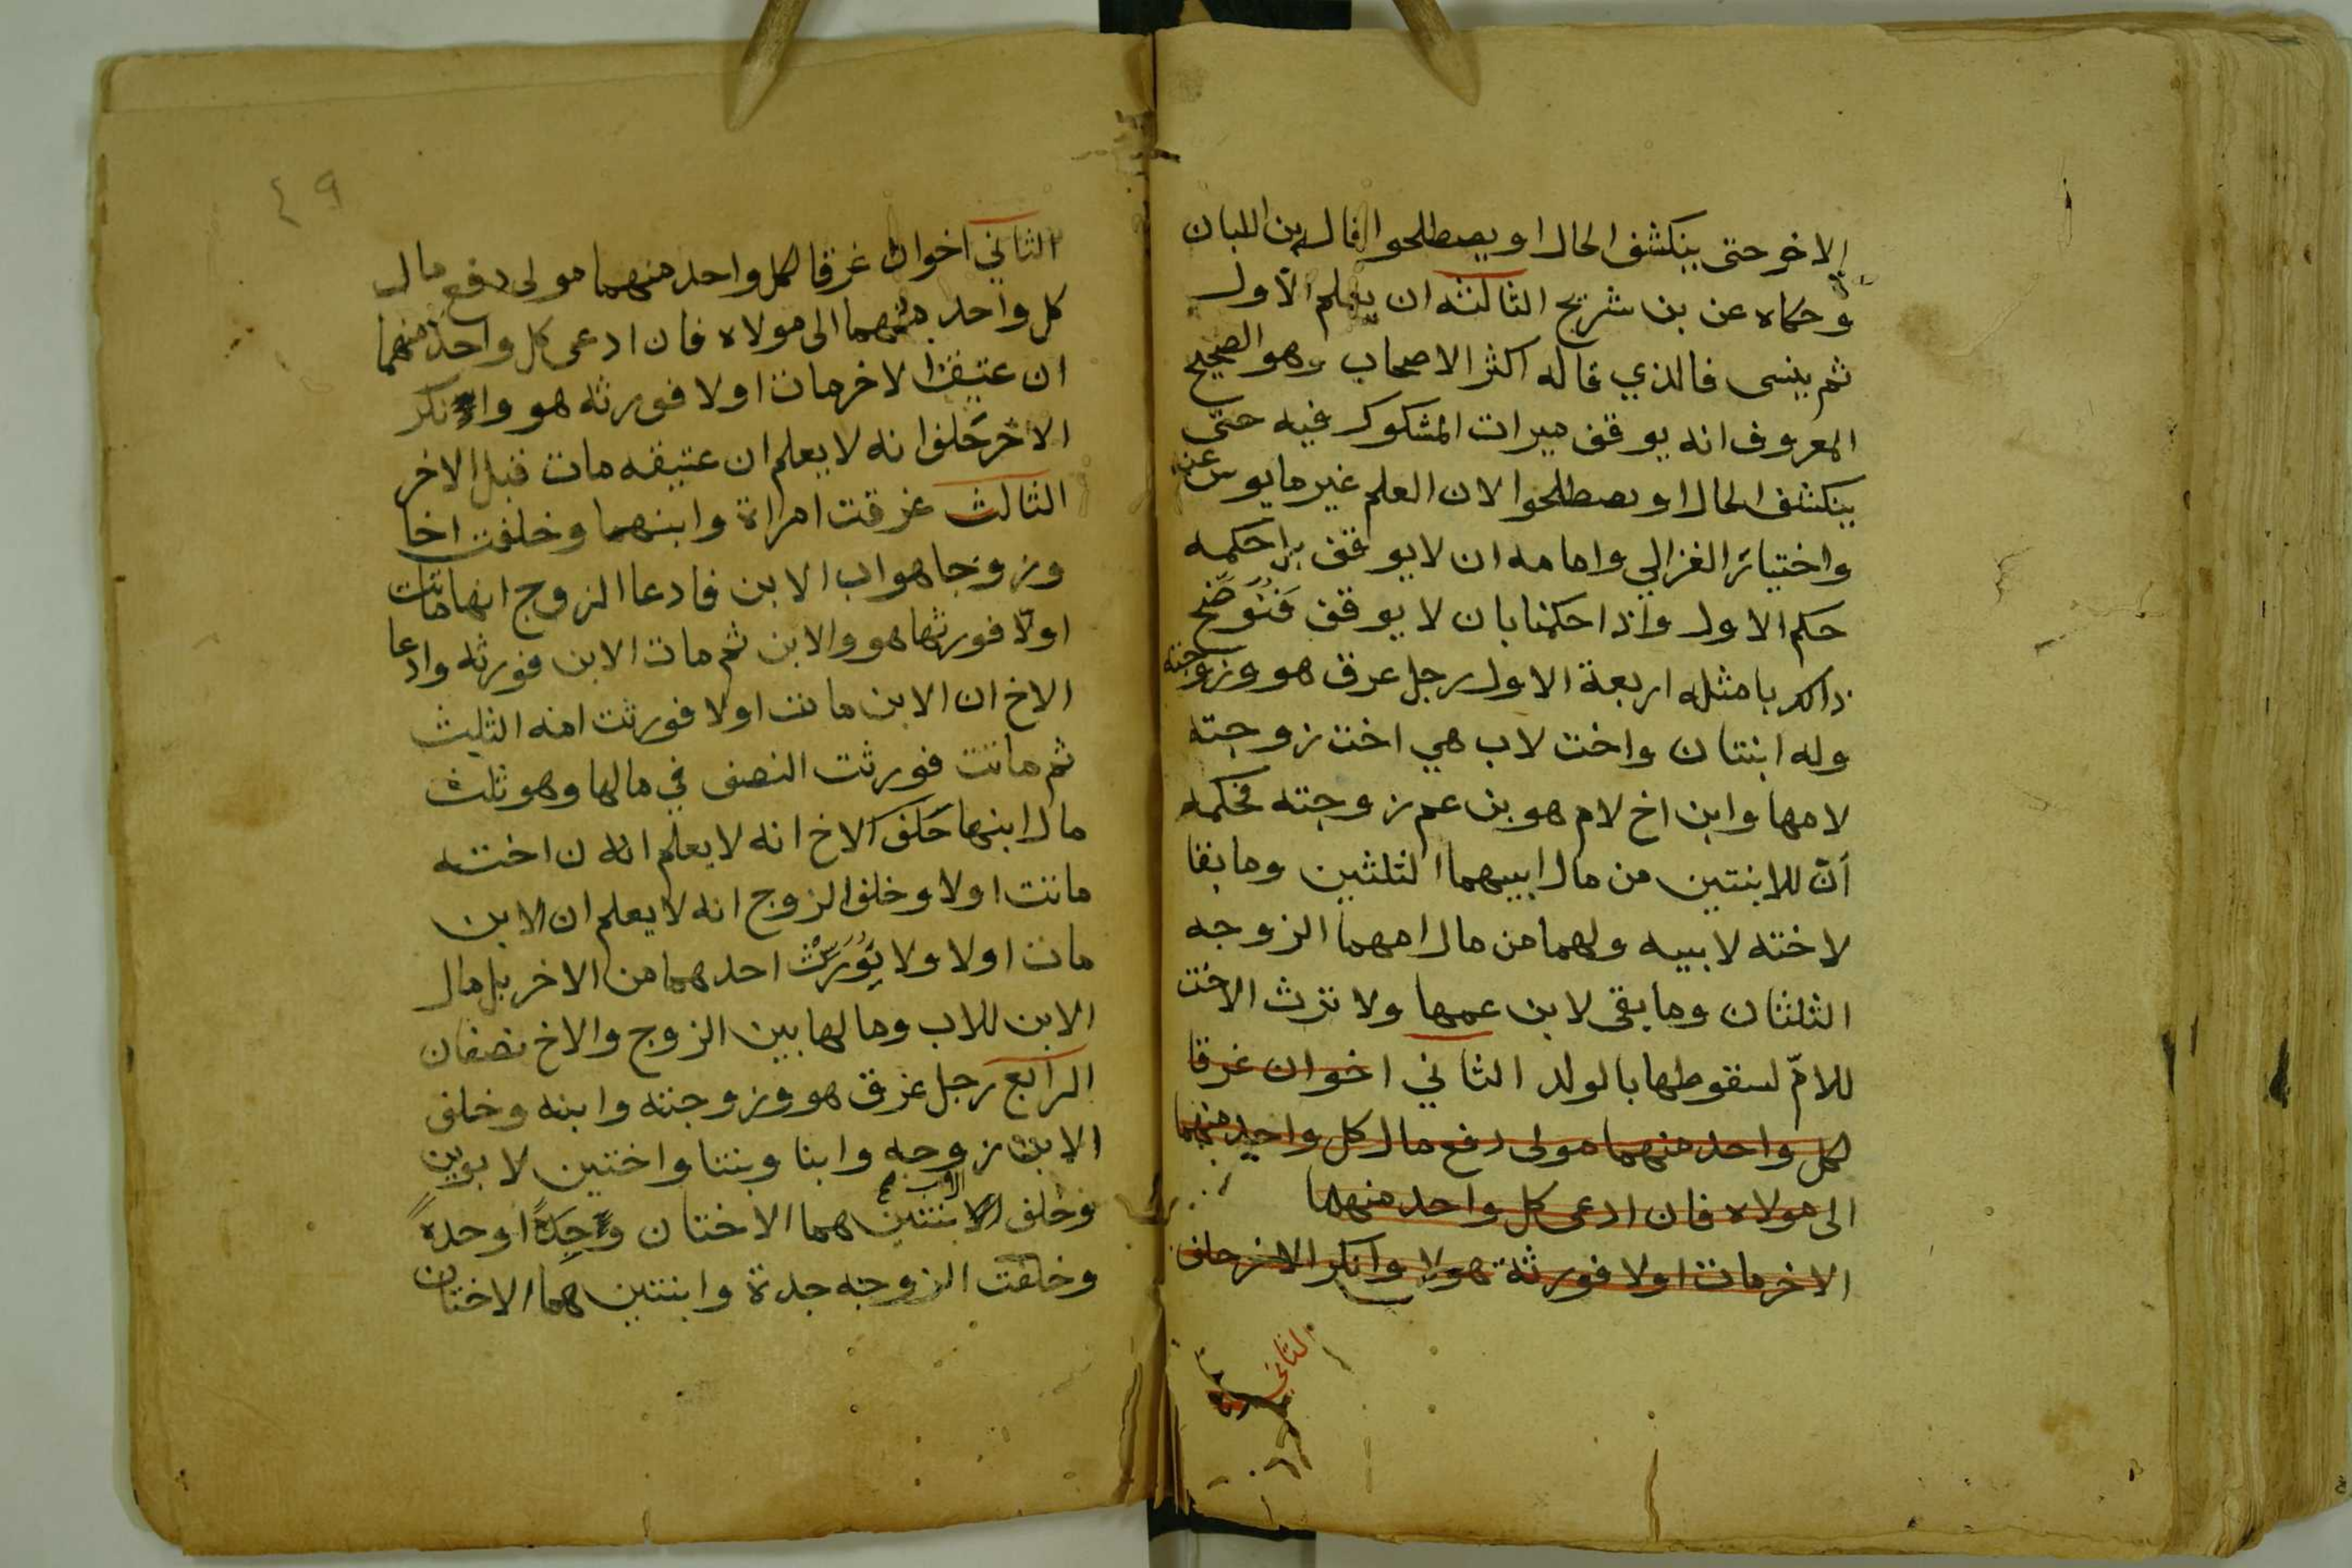 الاخر حتى ينكشف الحال او يصطلحوا قاله بن اللبان
وحكاه عن بن شريح الثالثه ان يعلم الاول
ثم ينسى فالذي قاله اكثر الاصحاب وهو الصحيح
المعروف انه يوقف ميراث المشكوك فيه حتى
ينكشف الحال او يصطلحوا لان العلم غير مايوس عنه
واختيار الغزالي وامامه ان لا يوقف بل حكمه
حكم الاول واذا حكمنا بان لا يوقف فنوضح
ذالك بامثله اربعة الاول رجل غرق هو وزوجته
وله ابنتان واخت لاب هي اخت زوجته
لامها وابن اخ لام هو بن عم زوجته فحكمه
أنّ للابنتين من مال ابيهما الثلثين وما بقا
لاخته لابيه ولهما من مال امهما الزوجه
الثلثان وما بقى لابن عمها ولا ترث الاخت
للامّ لسقوطها بالولد الثاني اخوان غرقا
لكل واحد منهما مولى دفع مال كل واحد منهما
الى مولاه فان ادعى كل واحد منهما
الاخر مات اولا فورثه هو وانكر الاخر حلف
الثاني
٤٩
الثاني اخوان غرقا لكل واحد منهما مولى دفع مال
كل واحد منهما الى مولاه فان ادعى كل واحد منهما
ان عتيق الاخر مات اولا فورثه هو وانكر
الاخر حَلف انه لا يعلم ان عتيقه مات قبل الاخر
الثالث غرقت امراة وابنهما وخلفت اخا
وزوجا هو اب الابن فادعا الزوج انها ماتت
اولا فورثها هو والابن ثم مات الابن فورثه وادعا
الاخ ان الابن مات اولا فورثت امه الثلث
ثم ماتت فورثت النصف في مالها وهو ثلث
مال ابنها حَلف الاخ انه لا يعلم ان اخته
ماتت اولا وحلف الزوج انه لا يعلم ان الابن
مات اولا ولا يُوَرّث احدهما من الاخر بل مال
الابن للاب ومالها بين الزوج والاخ نصفان
الرابع رجل غرق هو وزوجته وابنه وخلف
الابن زوجه وابنا وبنتا واختين لابوين
وخلف الاب ابنتين هما الاختان وجدة
وخلفت الزوجه جدة وابنتين هما الاختان